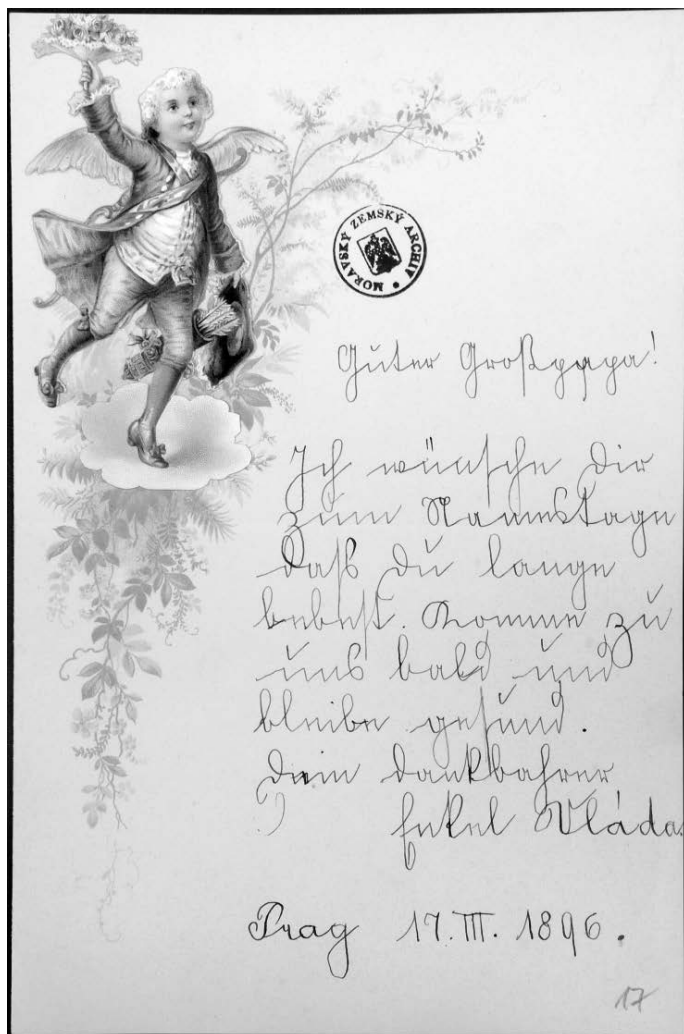 MORAVSKÝ ZEMSKÝ ARCHIV
Guter Großpapa!
Ich wünsche Dir
zum Namestage
daß du lange
lebest. Komme zu
uns bald und
bleibe gesund.
Dein dankbahrer
Enkel Vláda.
Prag 17. III. 1896.
17